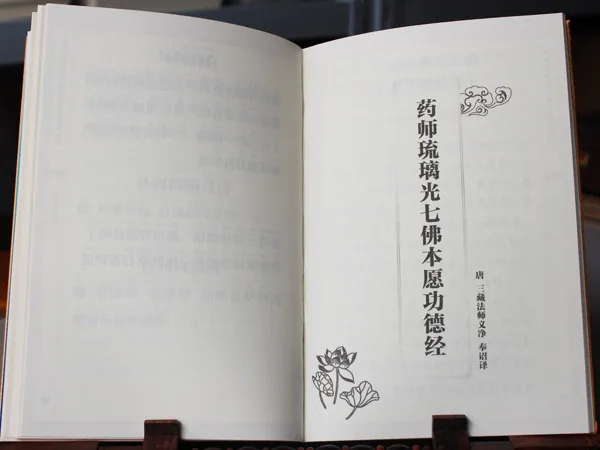 药师琉璃光七佛本愿功德经
唐 三藏法师义净 奉诏译